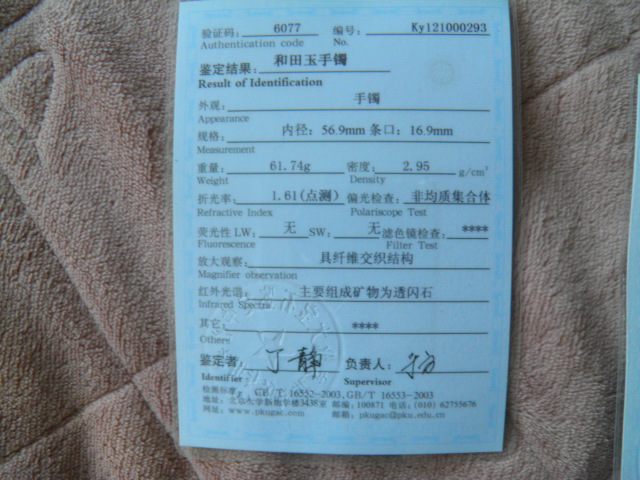 验证码: 6077 编号: Ky121000293
Authentication code No.
鉴定结果: 和田玉手镯
Result of Identification
外观: 手镯
Appearance
规格: 内径: 56.9mm 条口: 16.9mm
Measurement
重量: 61.74g 密度: 2.95 g/cm³
Weight Density
折光率: 1.61(点测) 偏光检查: 非均质集合体
Refractive Index Polariscope Test
荧光性 LW: 无 SW: 无 滤色镜检查: ****
Fluorescence Filter Test
放大观察: 具纤维交织结构
Magnifier observation
红外光谱: 主要组成矿物为透闪石
Infrared Spectra
其它: ****
Others
鉴定者: 丁静 负责人:
Identifier Supervisor
检测标准: GB/T 16552-2003,GB/T 16553-2003
地址: 北京大学新地学楼3438室 邮编: 100871 电话: (010) 62755676
网址: www.pkugac.com 邮箱: pkugac@pku.edu.cn